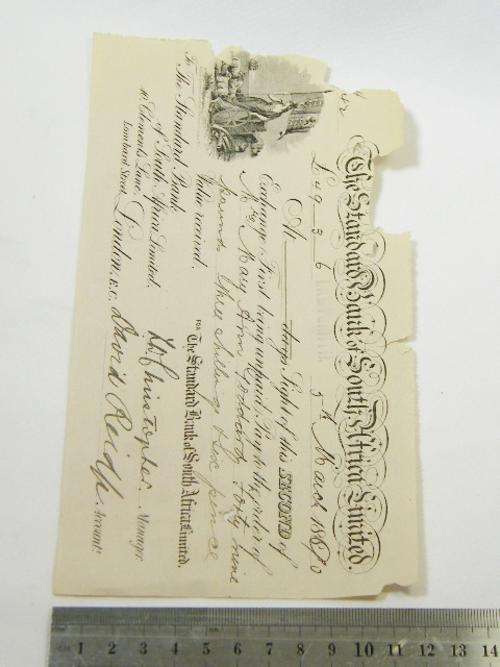 The Standard Bank of South Africa Limited.
£49 3 6
5th March 1890
At days Sight of this SECOND of
Exchange, First being unpaid, Pay to the order of
Mrs Mary Ann Goddard Forty nine
pounds three shillings & six pence
Value received.
FOR The Standard Bank of South Africa Limited.
To The Standard Bank
of South Africa Limited.
10 Clements Lane
Lombard Street, London, E.C.
Manager
David Reid
Account.
1 2 3 4 5 6 7 8 9 10 11 12 13 14